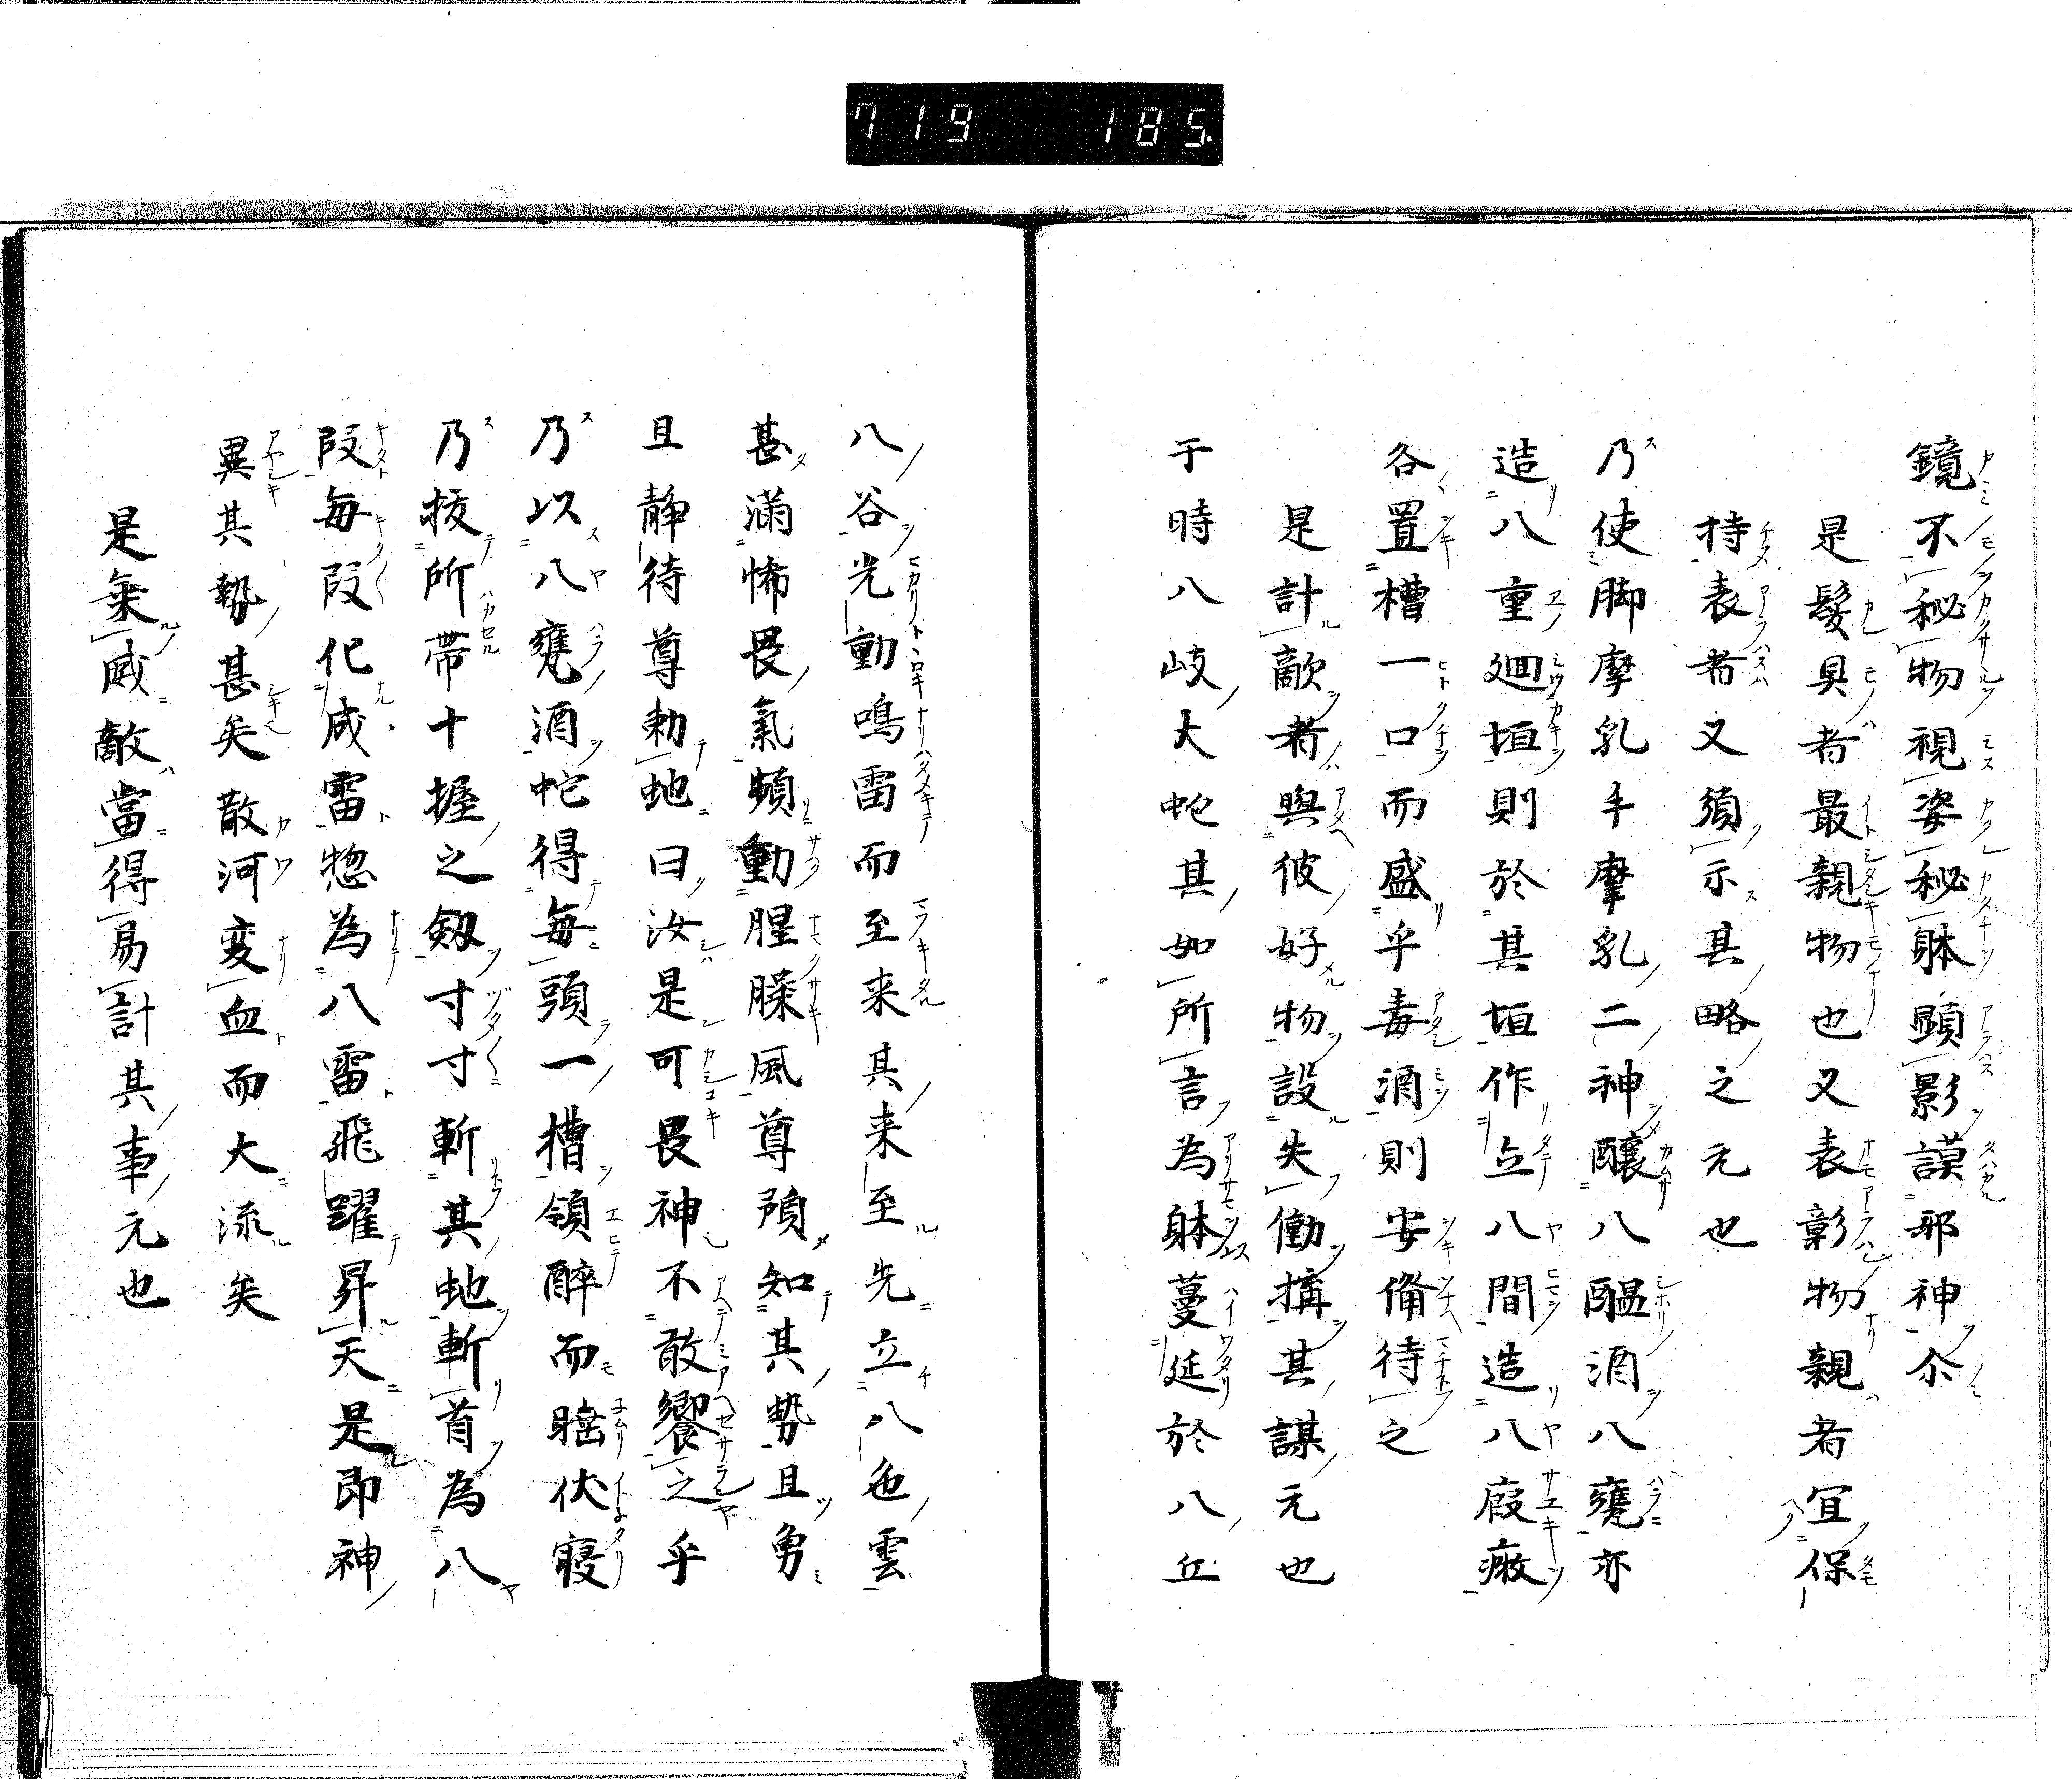 719 185
鏡不秘物視姿秘躰顕影謨邪神尒
是髪具者最親物也又表彰物親者宜保
持表者又須示其略之元也
乃使脚摩乳手摩乳二神醸八醞酒八甕亦
造八重廻垣則於其垣作立八間造八
各置槽一口而盛乎毒酒則安俻待之
是計敵者與彼好物設失働搆其謀元也
于時八岐大蛇其如所言為躰蔓延於八丘
八谷光動鳴雷而至来其来至先立八色雲
甚滿怖畏氣頻動腥臊風尊預知其勢且勇
且静待尊勅虵曰汝是可畏神不敢饗之乎
乃以八甕酒蛇得毎頭一槽領醉而睡伏寝
乃拔所帯十握之劔寸寸斬其虵斬首為八
段毎段化成雷惣為八雷飛躍昇天是即神
異其勢甚矣散河変血而大流矣
是乗威敵當得易計其事元也